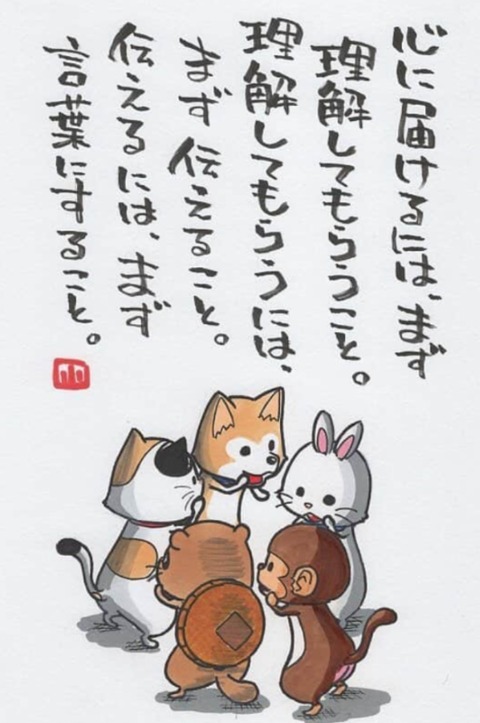 心に届けるには、まず
理解してもらうこと。
理解してもらうには、
まず伝えること。
伝えるには、まず
言葉にすること。